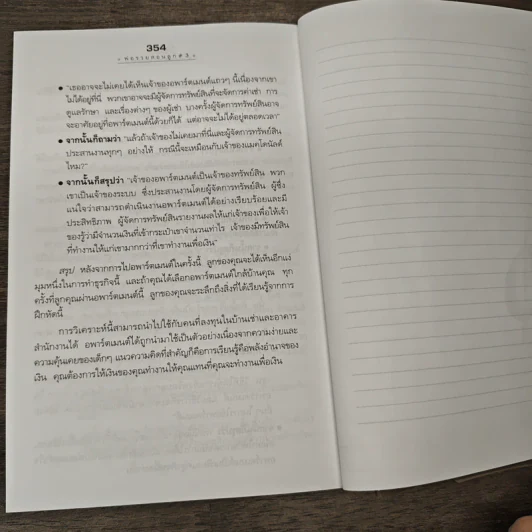 354
พ่อรวยสอนลูก # 3
● "เธออาจจะไม่เคยได้เห็นเจ้าของอพาร์ตเมนต์แถวๆ นี้เนื่องจากเขา
ไม่ได้อยู่ที่นี่ พวกเขาอาจจะมีผู้จัดการทรัพย์สินที่จะจัดการค่าเช่า การ
ดูแลรักษา และเรื่องต่างๆ ของผู้เช่า บางครั้งผู้จัดการทรัพย์สินอาจ
จะอาศัยอยู่ที่อพาร์ตเมนต์นี้ด้วยก็ได้ แต่อาจจะไม่ได้อยู่ตลอดเวลา"
● จากนั้นก็ถามว่า "แล้วถ้าเจ้าของไม่เคยมาที่นี่และผู้จัดการทรัพย์สิน
ประสานงานทุกๆ อย่างให้ กรณีนี้จะเหมือนกับเจ้าของแมคโดนัลด์
ไหม?"
● จากนั้นก็สรุปว่า "เจ้าของอพาร์ตเมนต์เป็นเจ้าของทรัพย์สิน พวก
เขาเป็นเจ้าของระบบ ซึ่งประสานงานโดยผู้จัดการทรัพย์สิน ผู้ซึ่ง
แน่ใจว่าสามารถดำเนินงานอพาร์ตเมนต์ได้อย่างเรียบร้อยและมี
ประสิทธิภาพ ผู้จัดการทรัพย์สินรายงานผลให้แก่เจ้าของเพื่อให้เจ้า
ของรู้ว่ามีจำนวนเงินที่เข้ากระเป๋าเขาจำนวนเท่าไร เจ้าของมีทรัพย์สิน
ที่ทำงานให้แก่เขามากกว่าที่เขาทำงานเพื่อเงิน"
สรุป หลังจากการไปอพาร์ตเมนต์ในครั้งนี้ ลูกของคุณจะได้เห็นอีกแง่
มุมหนึ่งในการทำธุรกิจนี้ และถ้าคุณได้เลือกอพาร์ตเมนต์ใกล้บ้านคุณ ทุก
ครั้งที่ลูกคุณผ่านอพาร์ตเมนต์นี้ ลูกของคุณจะระลึกถึงสิ่งที่ได้เรียนรู้จากการ
ฝึกหัดนี้
การวิเคราะห์นี้สามารถนำไปใช้กับคนที่ลงทุนในบ้านเช่าและอาคาร
สำนักงานได้ อพาร์ตเมนต์ได้ถูกนำมาใช้เป็นตัวอย่างเนื่องจากความง่ายและ
ความคุ้นเคยของเด็กๆ แนวความคิดที่สำคัญก็คือการเรียนรู้คือพลังอำนาจของ
เงิน คุณต้องการให้เงินของคุณทำงานให้คุณแทนที่คุณจะทำงานเพื่อเงิน